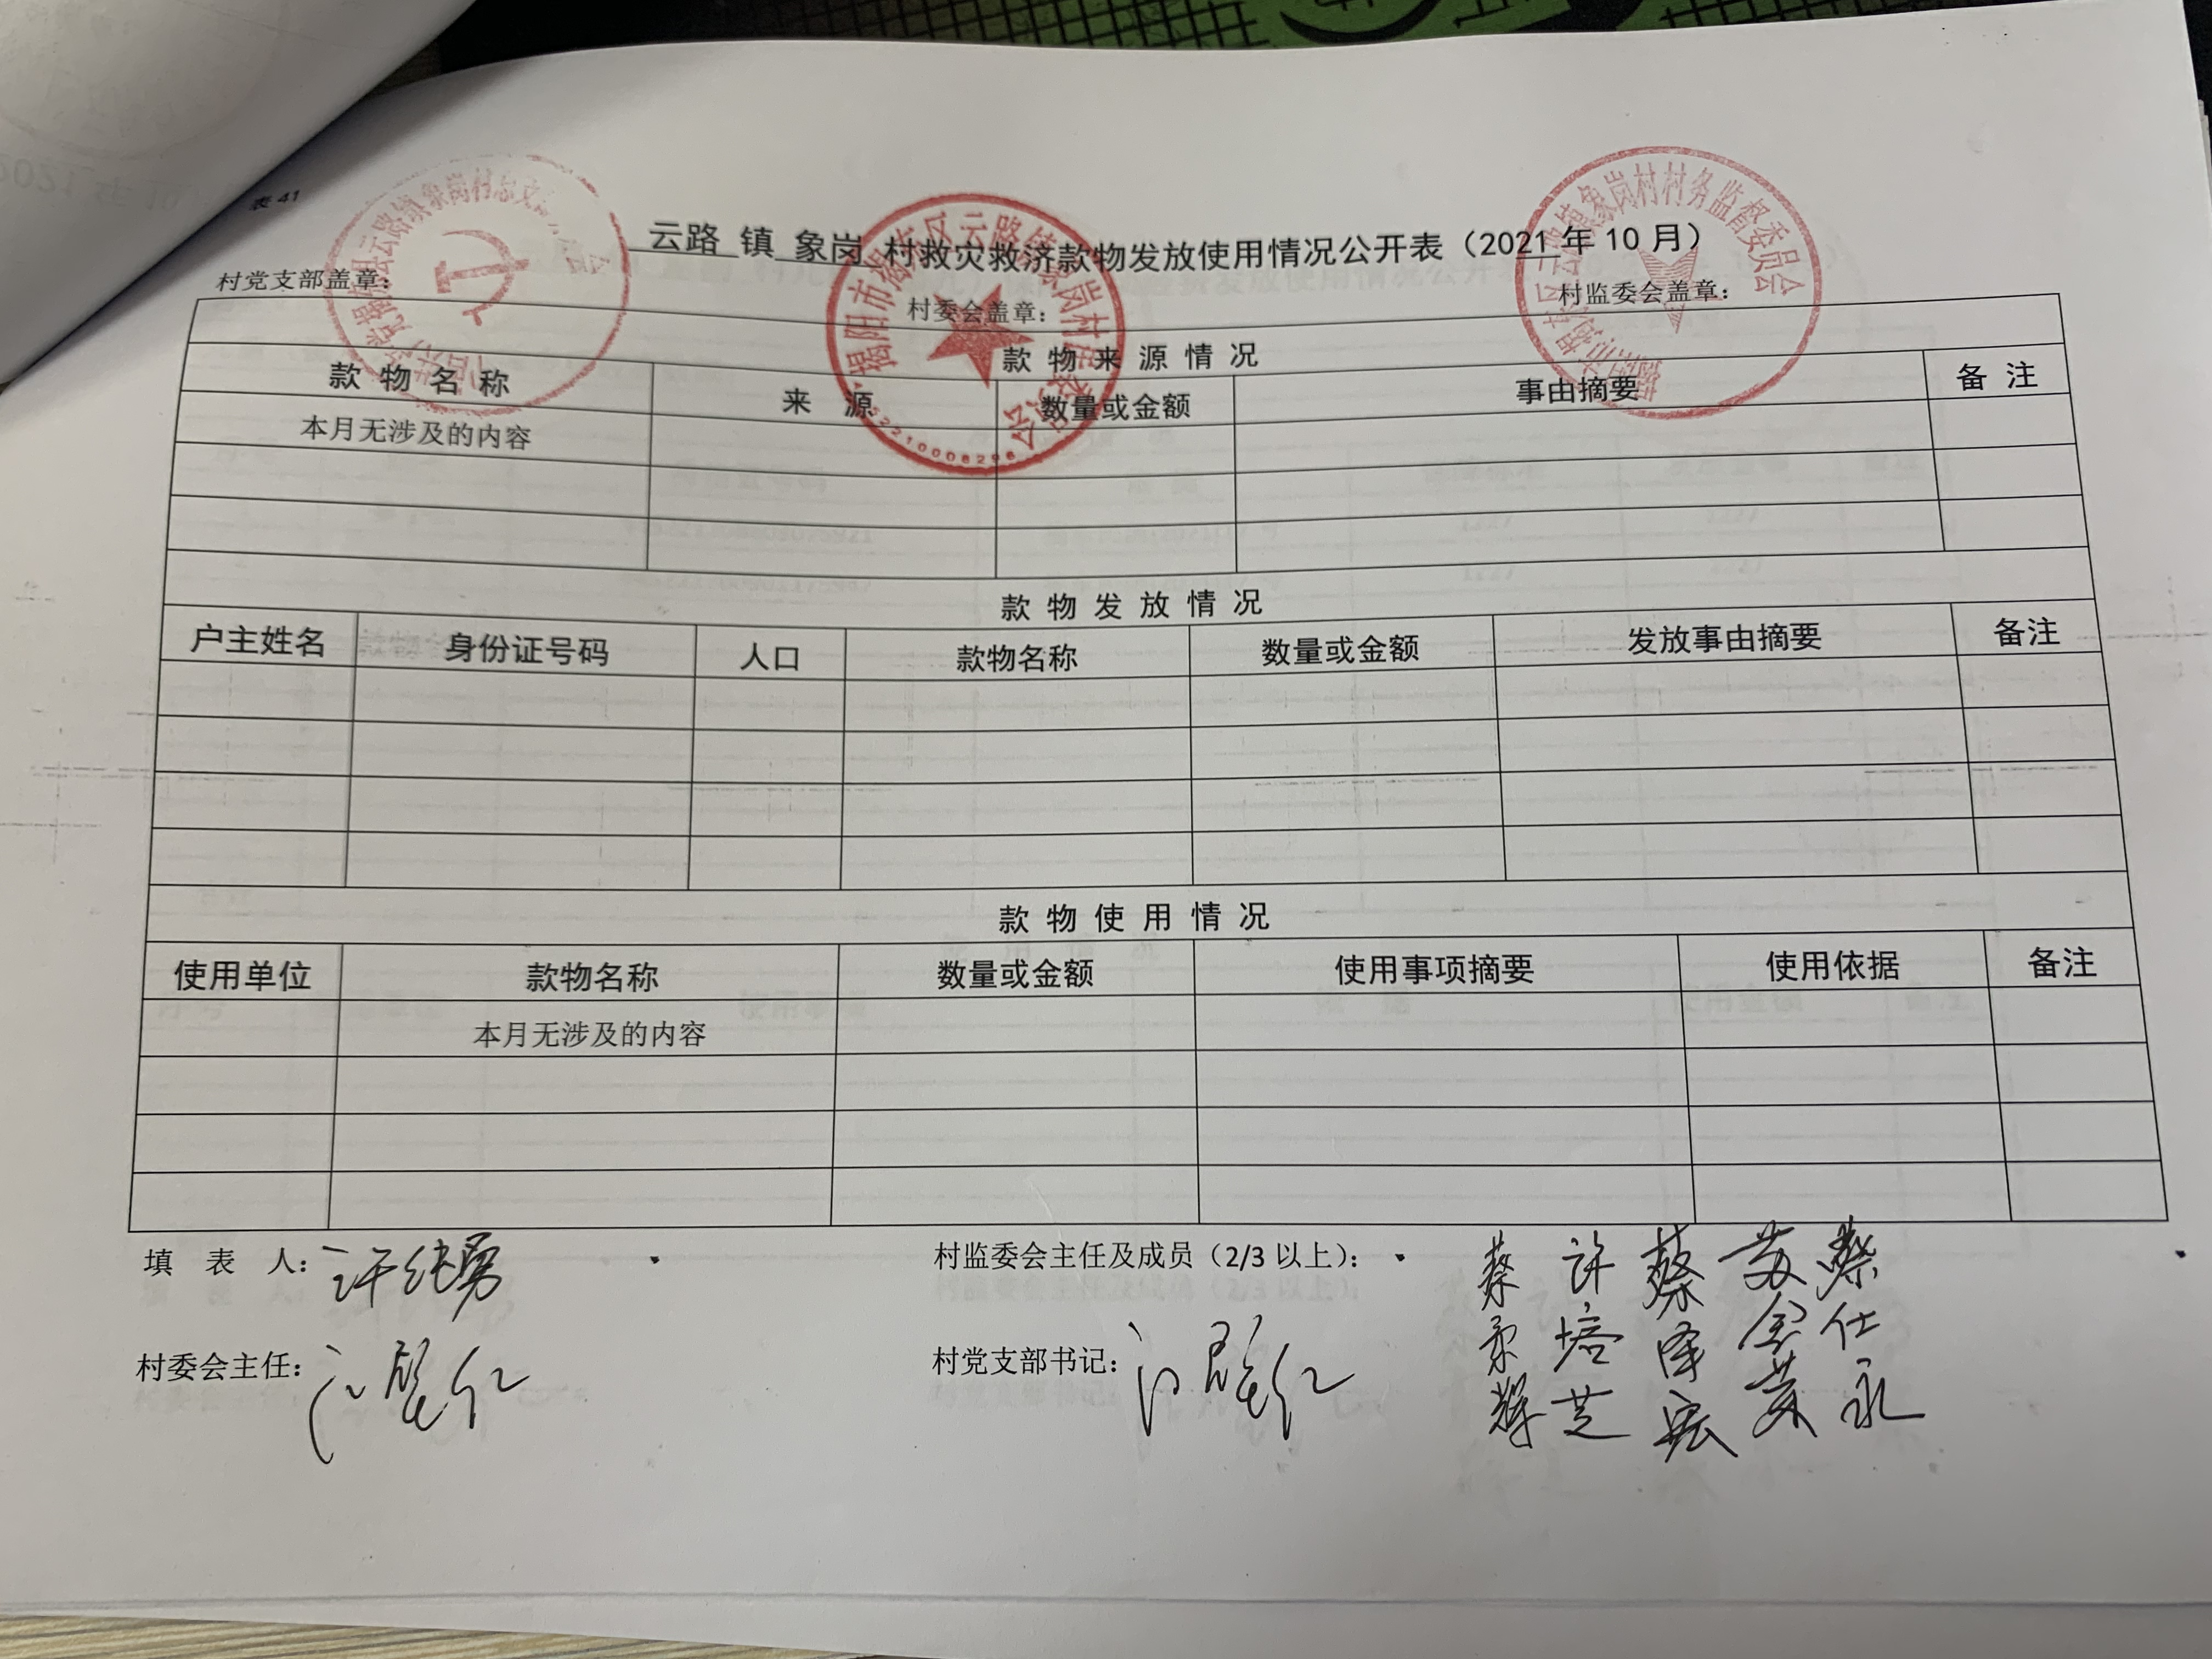 表 41
云路 镇 象岗 村救灾救济款物发放使用情况公开表（2021 年 10 月）
村党支部盖章： 村委会盖章： 村监委会盖章：
款 物 来 源 情 况
款 物 名 称 来 源 数量或金额 事由摘要 备 注
本月无涉及的内容
款 物 发 放 情 况
户主姓名 身份证号码 人口 款物名称 数量或金额 发放事由摘要 备注
款 物 使 用 情 况
使用单位 款物名称 数量或金额 使用事项摘要 使用依据 备注
本月无涉及的内容
填 表 人： 许纯勇 村监委会主任及成员（2/3 以上）： 许培芝 蔡仕永
村委会主任： 村党支部书记：